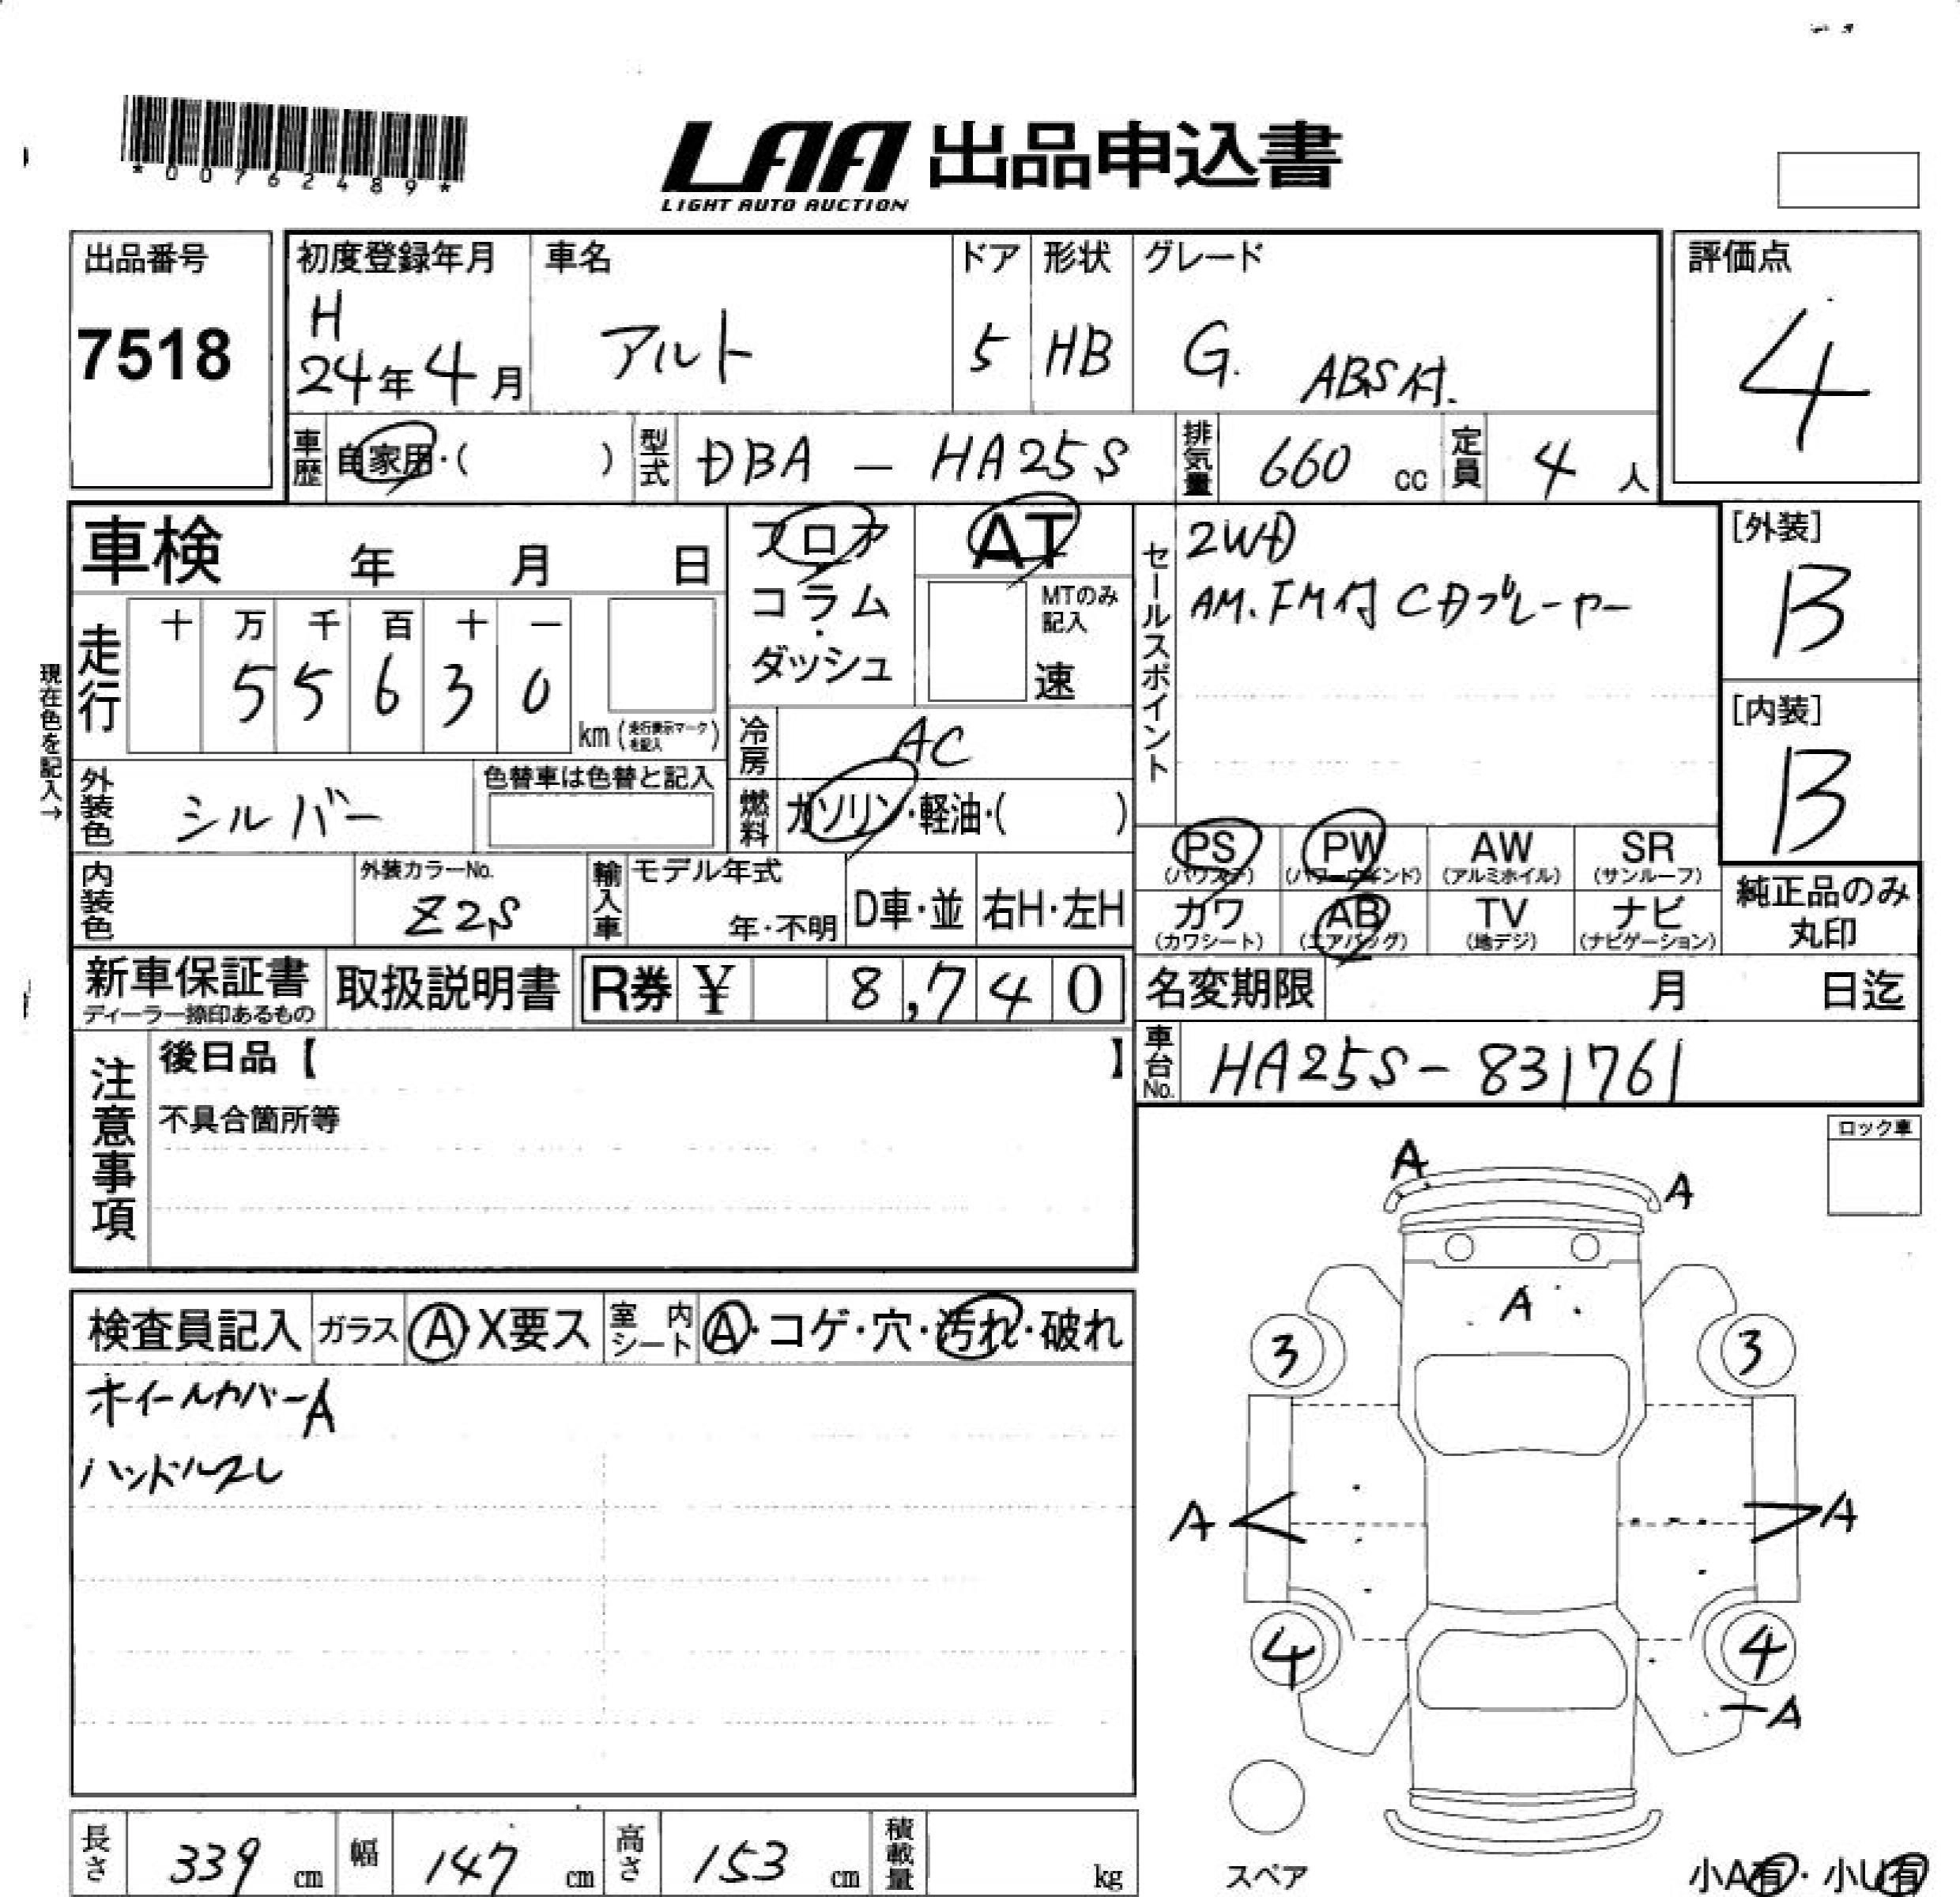 *00762489*
LAA 出品申込書
LIGHT AUTO AUCTION
出品番号
7518
初度登録年月
H
24年4月
車名
アルト
ドア
5
形状
HB
グレード
G. ABS付.
評価点
4
車歴 自家用・( )
型式 DBA — HA25S
排気量 660 cc
定員 4 人
車検 年 月 日
走行
十 万 千 百 十 一
5 5 6 3 0
km (走行表示マークを記入)
現在色を記入→
フロア
コラム・
ダッシュ
AT
MTのみ記入
速
冷房 AC
燃料 ガソリン・軽油・( )
セールスポイント
2WD
AM.FM付 CDプレーヤー
[外装]
B
[内装]
B
外装色 シルバー
色替車は色替と記入
内装色
外装カラーNo.
Z2S
輸入車
モデル年式
年・不明
D車・並
右H・左H
PS
(パワステ)
PW
(パワーウインド)
AW
(アルミホイル)
SR
(サンルーフ)
カワ
(カワシート)
AB
(エアバッグ)
TV
(地デジ)
ナビ
(ナビゲーション)
純正品のみ
丸印
新車保証書
ディーラー捺印あるもの
取扱説明書
R券 ¥ 8,740
名変期限 月 日迄
車台No. HA25S-831761
注意事項
後日品【 】
不具合箇所等
ロック車
検査員記入
ガラス
A・X要ス
室内シート
A・コゲ・穴・汚れ・破れ
ホイールカバーA
ハンドルスレ
A
A
A
3
3
A
A
4
4
A
スペア
小A有・小U有
長さ 339 cm
幅 147 cm
高さ 153 cm
積載量 kg